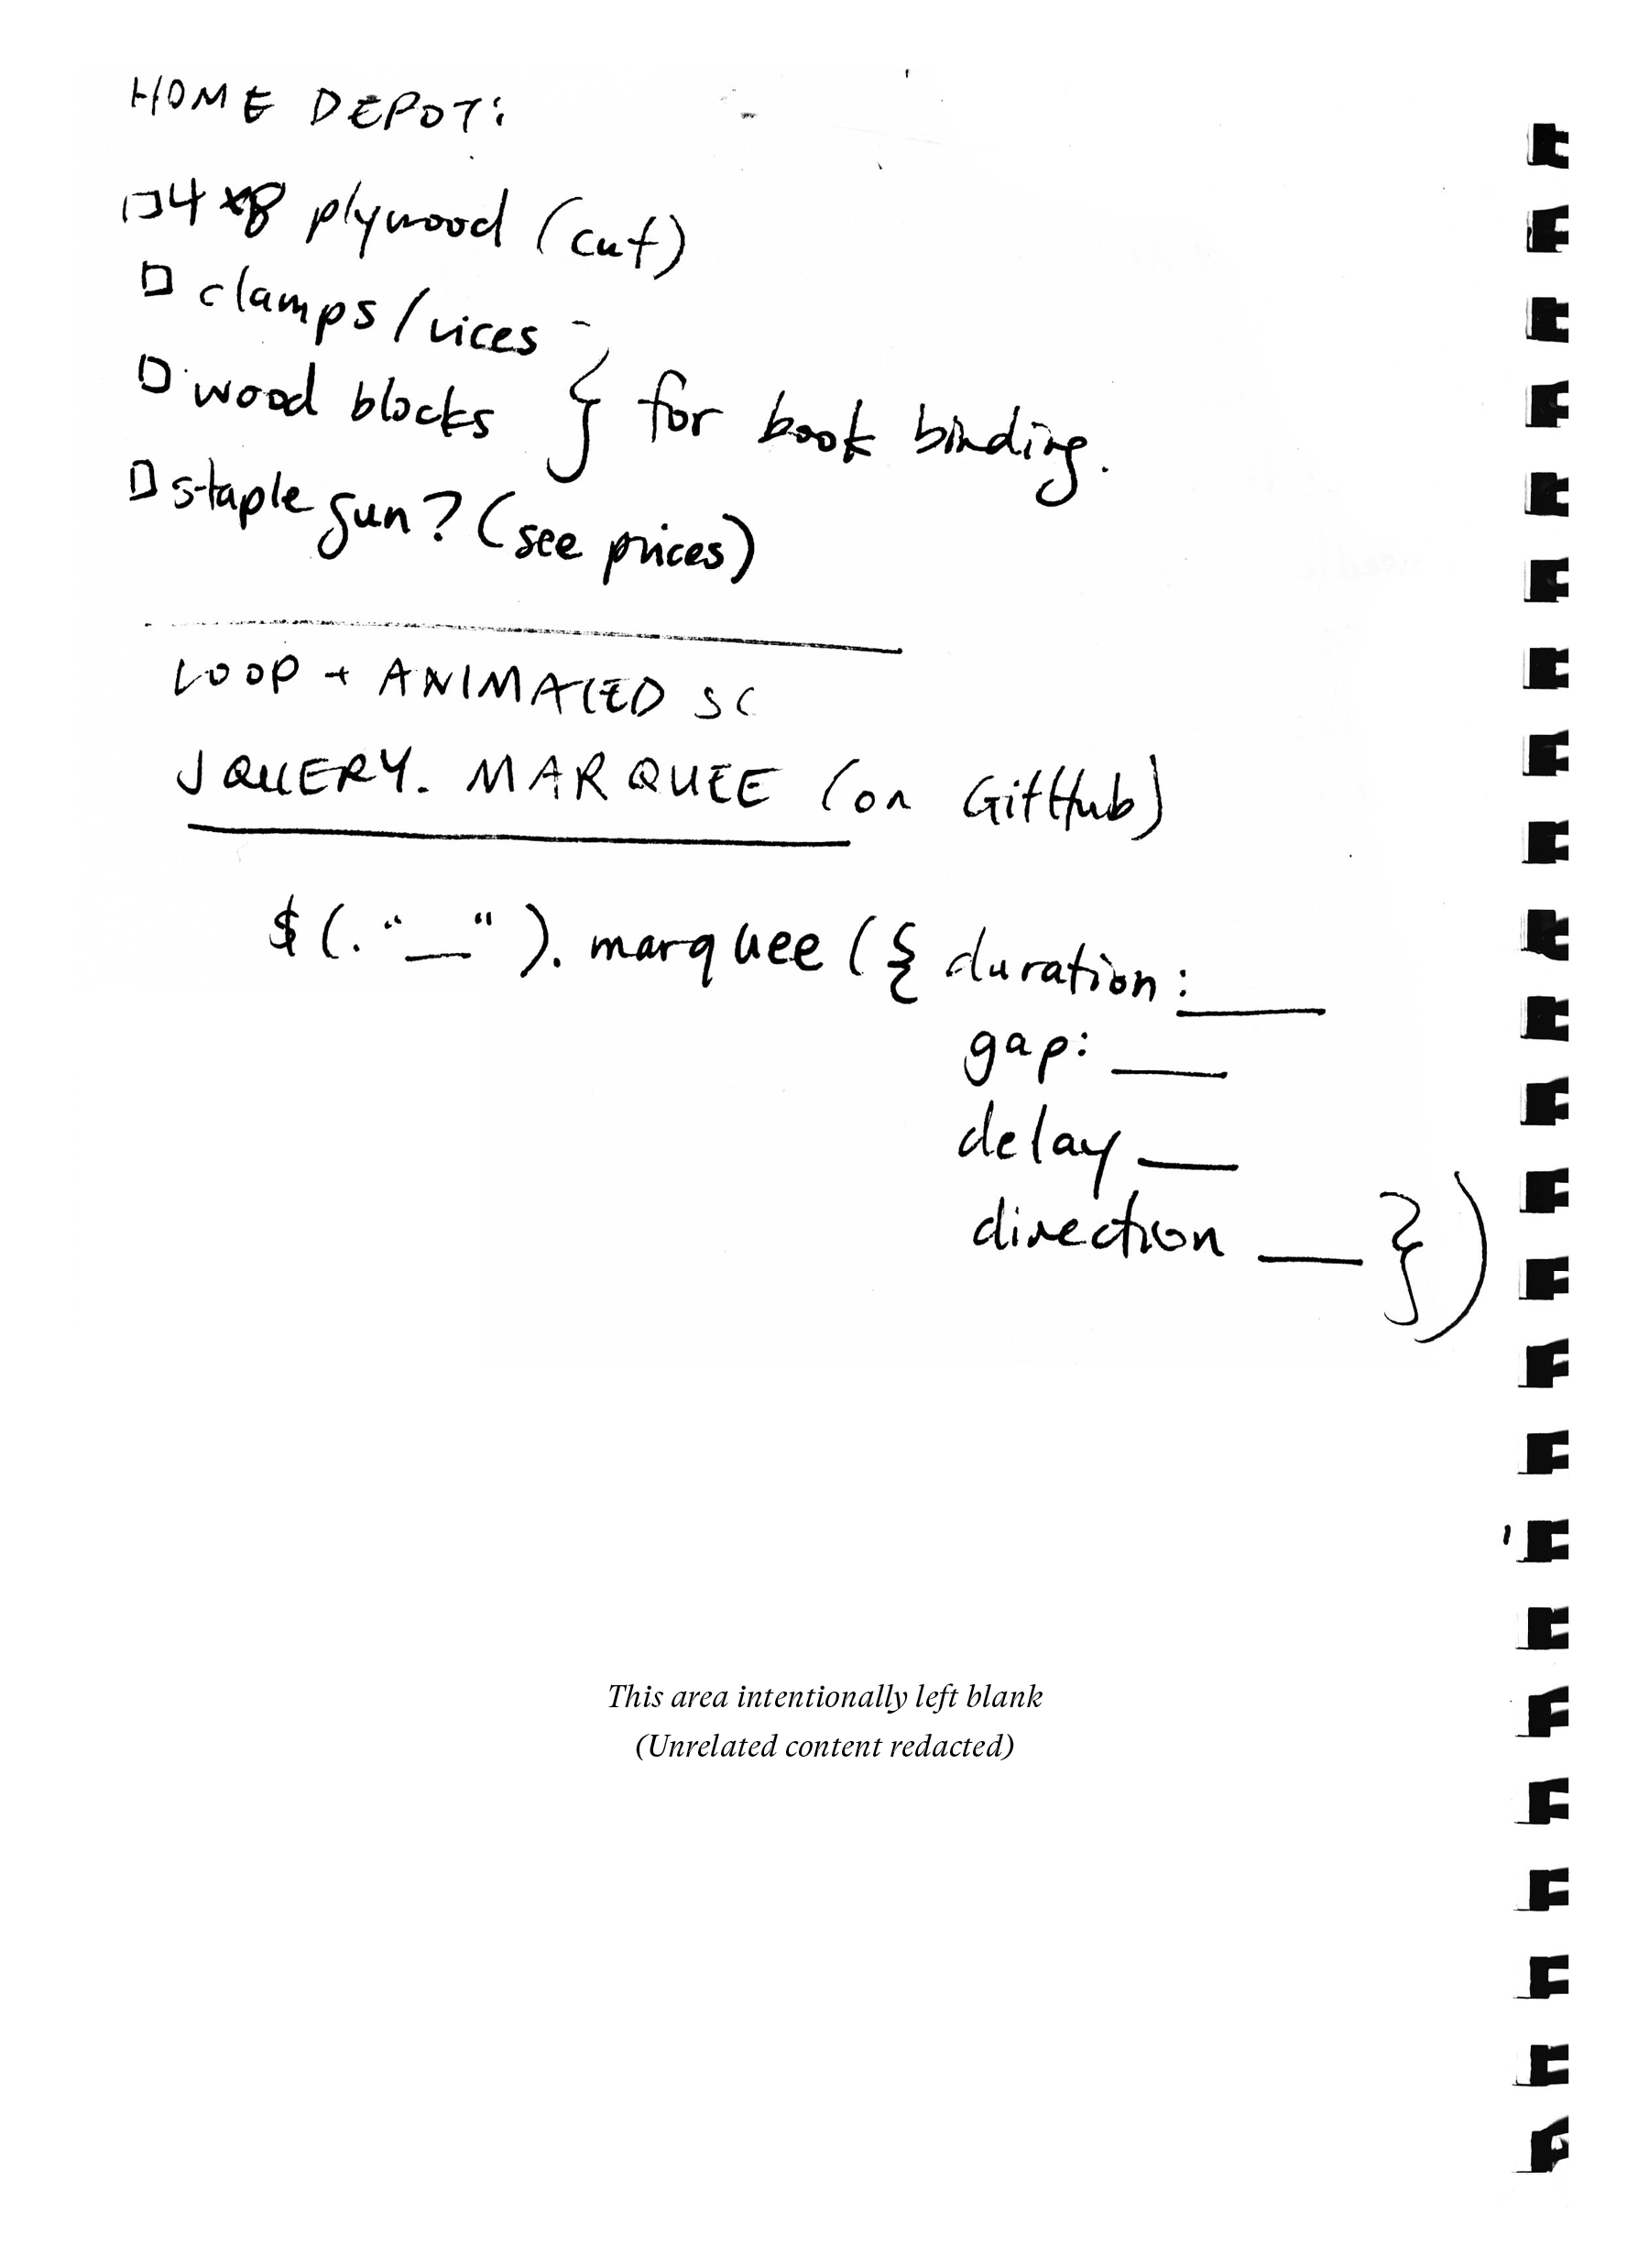 HOME DEPOT:
□ 4x8 plywood (cut)
□ clamps/vices
□ wood blocks } for book binding.
□ staple gun? (see prices)
LOOP + ANIMATED SC
JQUERY. MARQUEE (on GitHub)
$(."__"). marquee ({ duration: ____
gap: ___
delay ___
direction ___ })
This area intentionally left blank
(Unrelated content redacted)